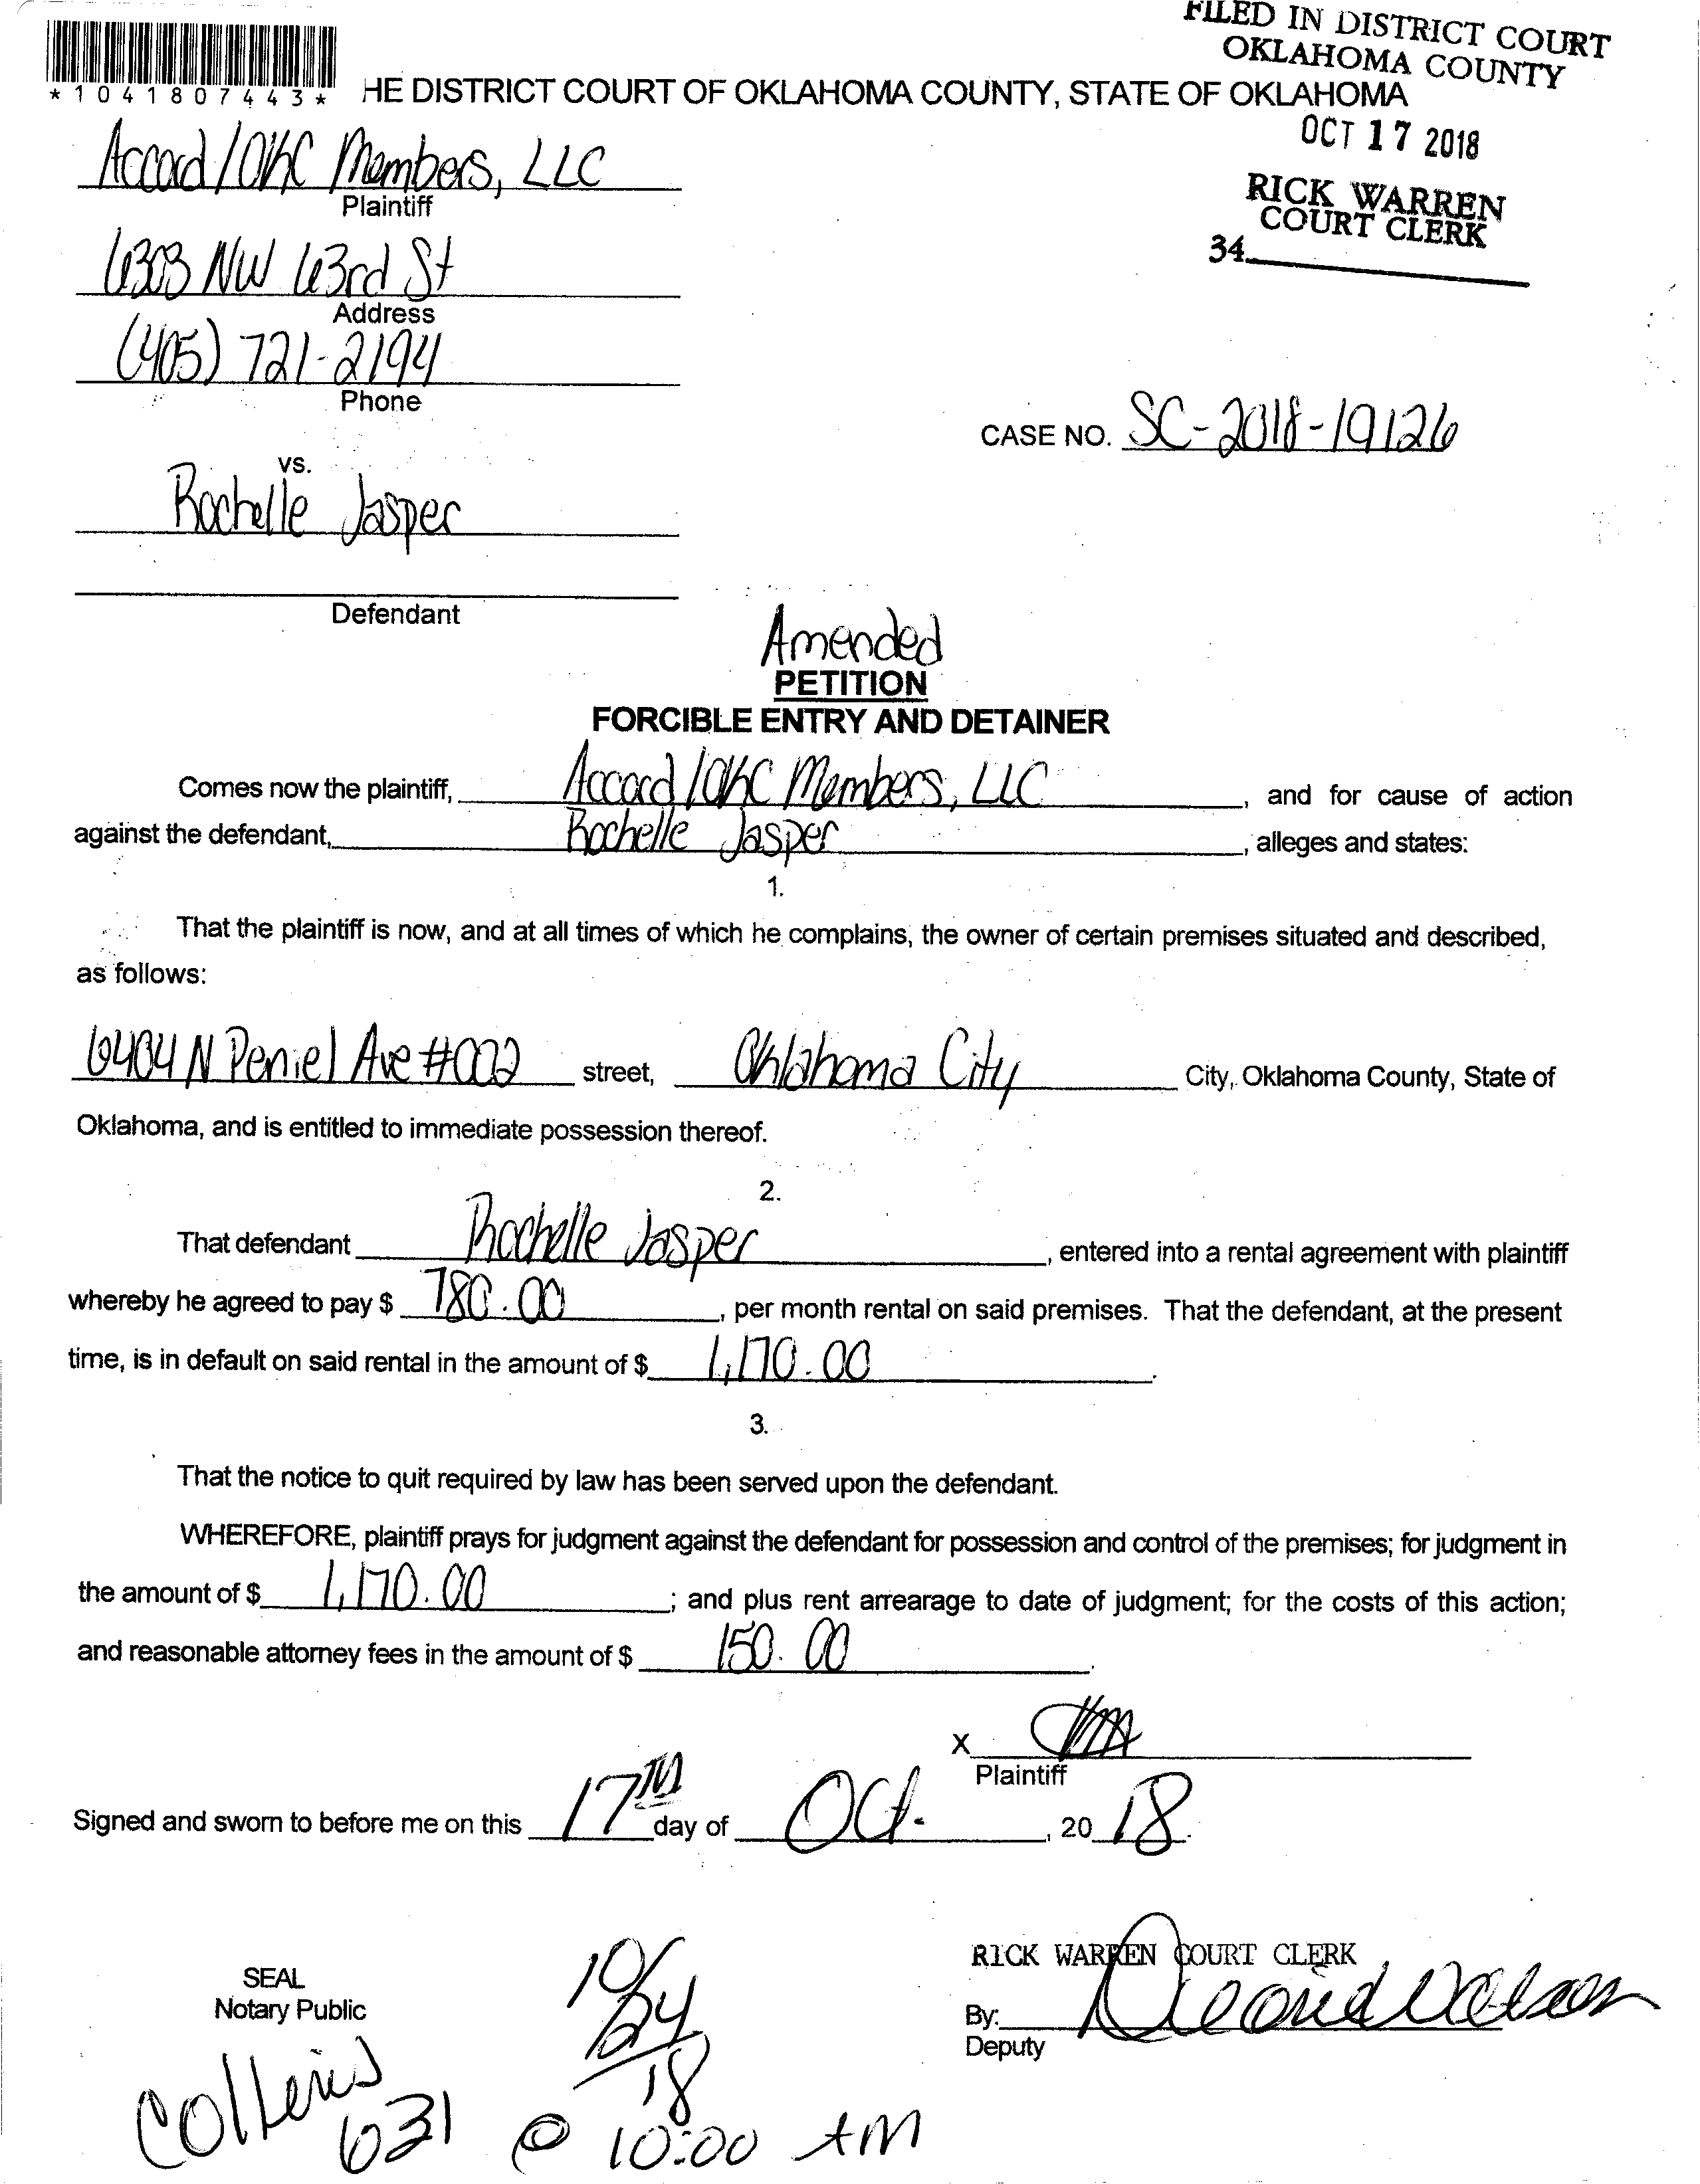 FILED IN DISTRICT COURT
OKLAHOMA COUNTY
*1041807443* HE DISTRICT COURT OF OKLAHOMA COUNTY, STATE OF OKLAHOMA
OCT 17 2018
RICK WARREN
COURT CLERK
34
Accord/OKC Members, LLC
Plaintiff
6303 NW 63rd St
Address
(405) 721-2194
Phone
CASE NO. SC-2018-19126
vs.
Rochelle Jasper
Defendant
Amended
PETITION
FORCIBLE ENTRY AND DETAINER
Comes now the plaintiff, Accord/OKC Members, LLC, and for cause of action
against the defendant, Rochelle Jasper, alleges and states:
1.
That the plaintiff is now, and at all times of which he complains, the owner of certain premises situated and described,
as follows:
6404 N Peniel Ave #002 street, Oklahoma City City, Oklahoma County, State of
Oklahoma, and is entitled to immediate possession thereof.
2.
That defendant Rochelle Jasper, entered into a rental agreement with plaintiff
whereby he agreed to pay $ 780.00, per month rental on said premises. That the defendant, at the present
time, is in default on said rental in the amount of $ 1,170.00.
3.
That the notice to quit required by law has been served upon the defendant.
WHEREFORE, plaintiff prays for judgment against the defendant for possession and control of the premises; for judgment in
the amount of $ 1,170.00; and plus rent arrearage to date of judgment; for the costs of this action;
and reasonable attorney fees in the amount of $ 150.00.
X
Plaintiff
Signed and sworn to before me on this 17TH day of Oct., 20 18.
RICK WARREN COURT CLERK
SEAL
Notary Public
By:
Deputy
10/24/18
631 @ 10:00 AM